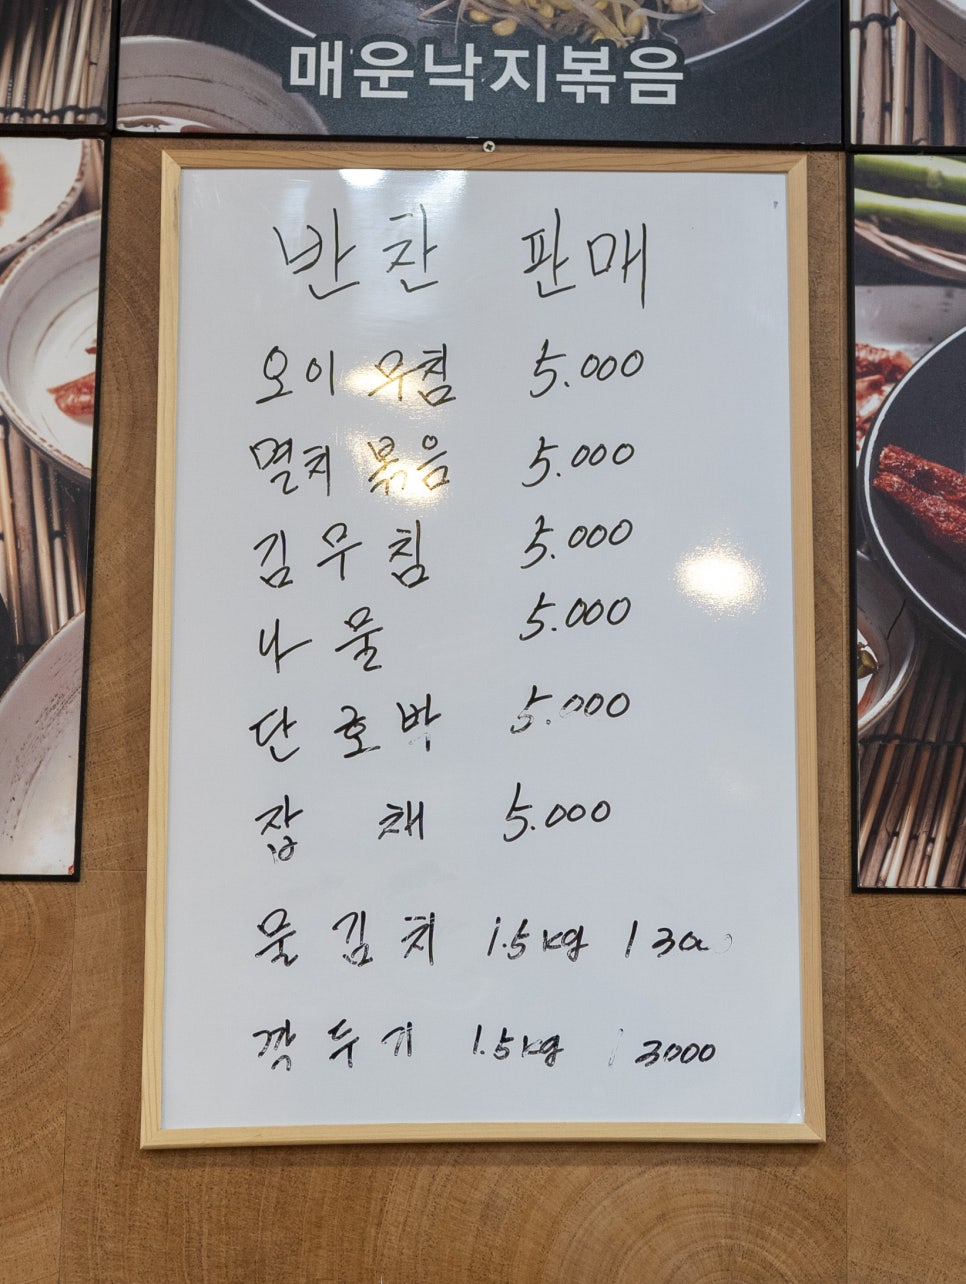 매운낙지볶음
반찬 판매
오이 무침 5.000
멸치 볶음 5.000
김무침 5.000
나물 5.000
단호박 5.000
잡채 5.000
물김치 1.5kg
깍두기 1.5kg 13000